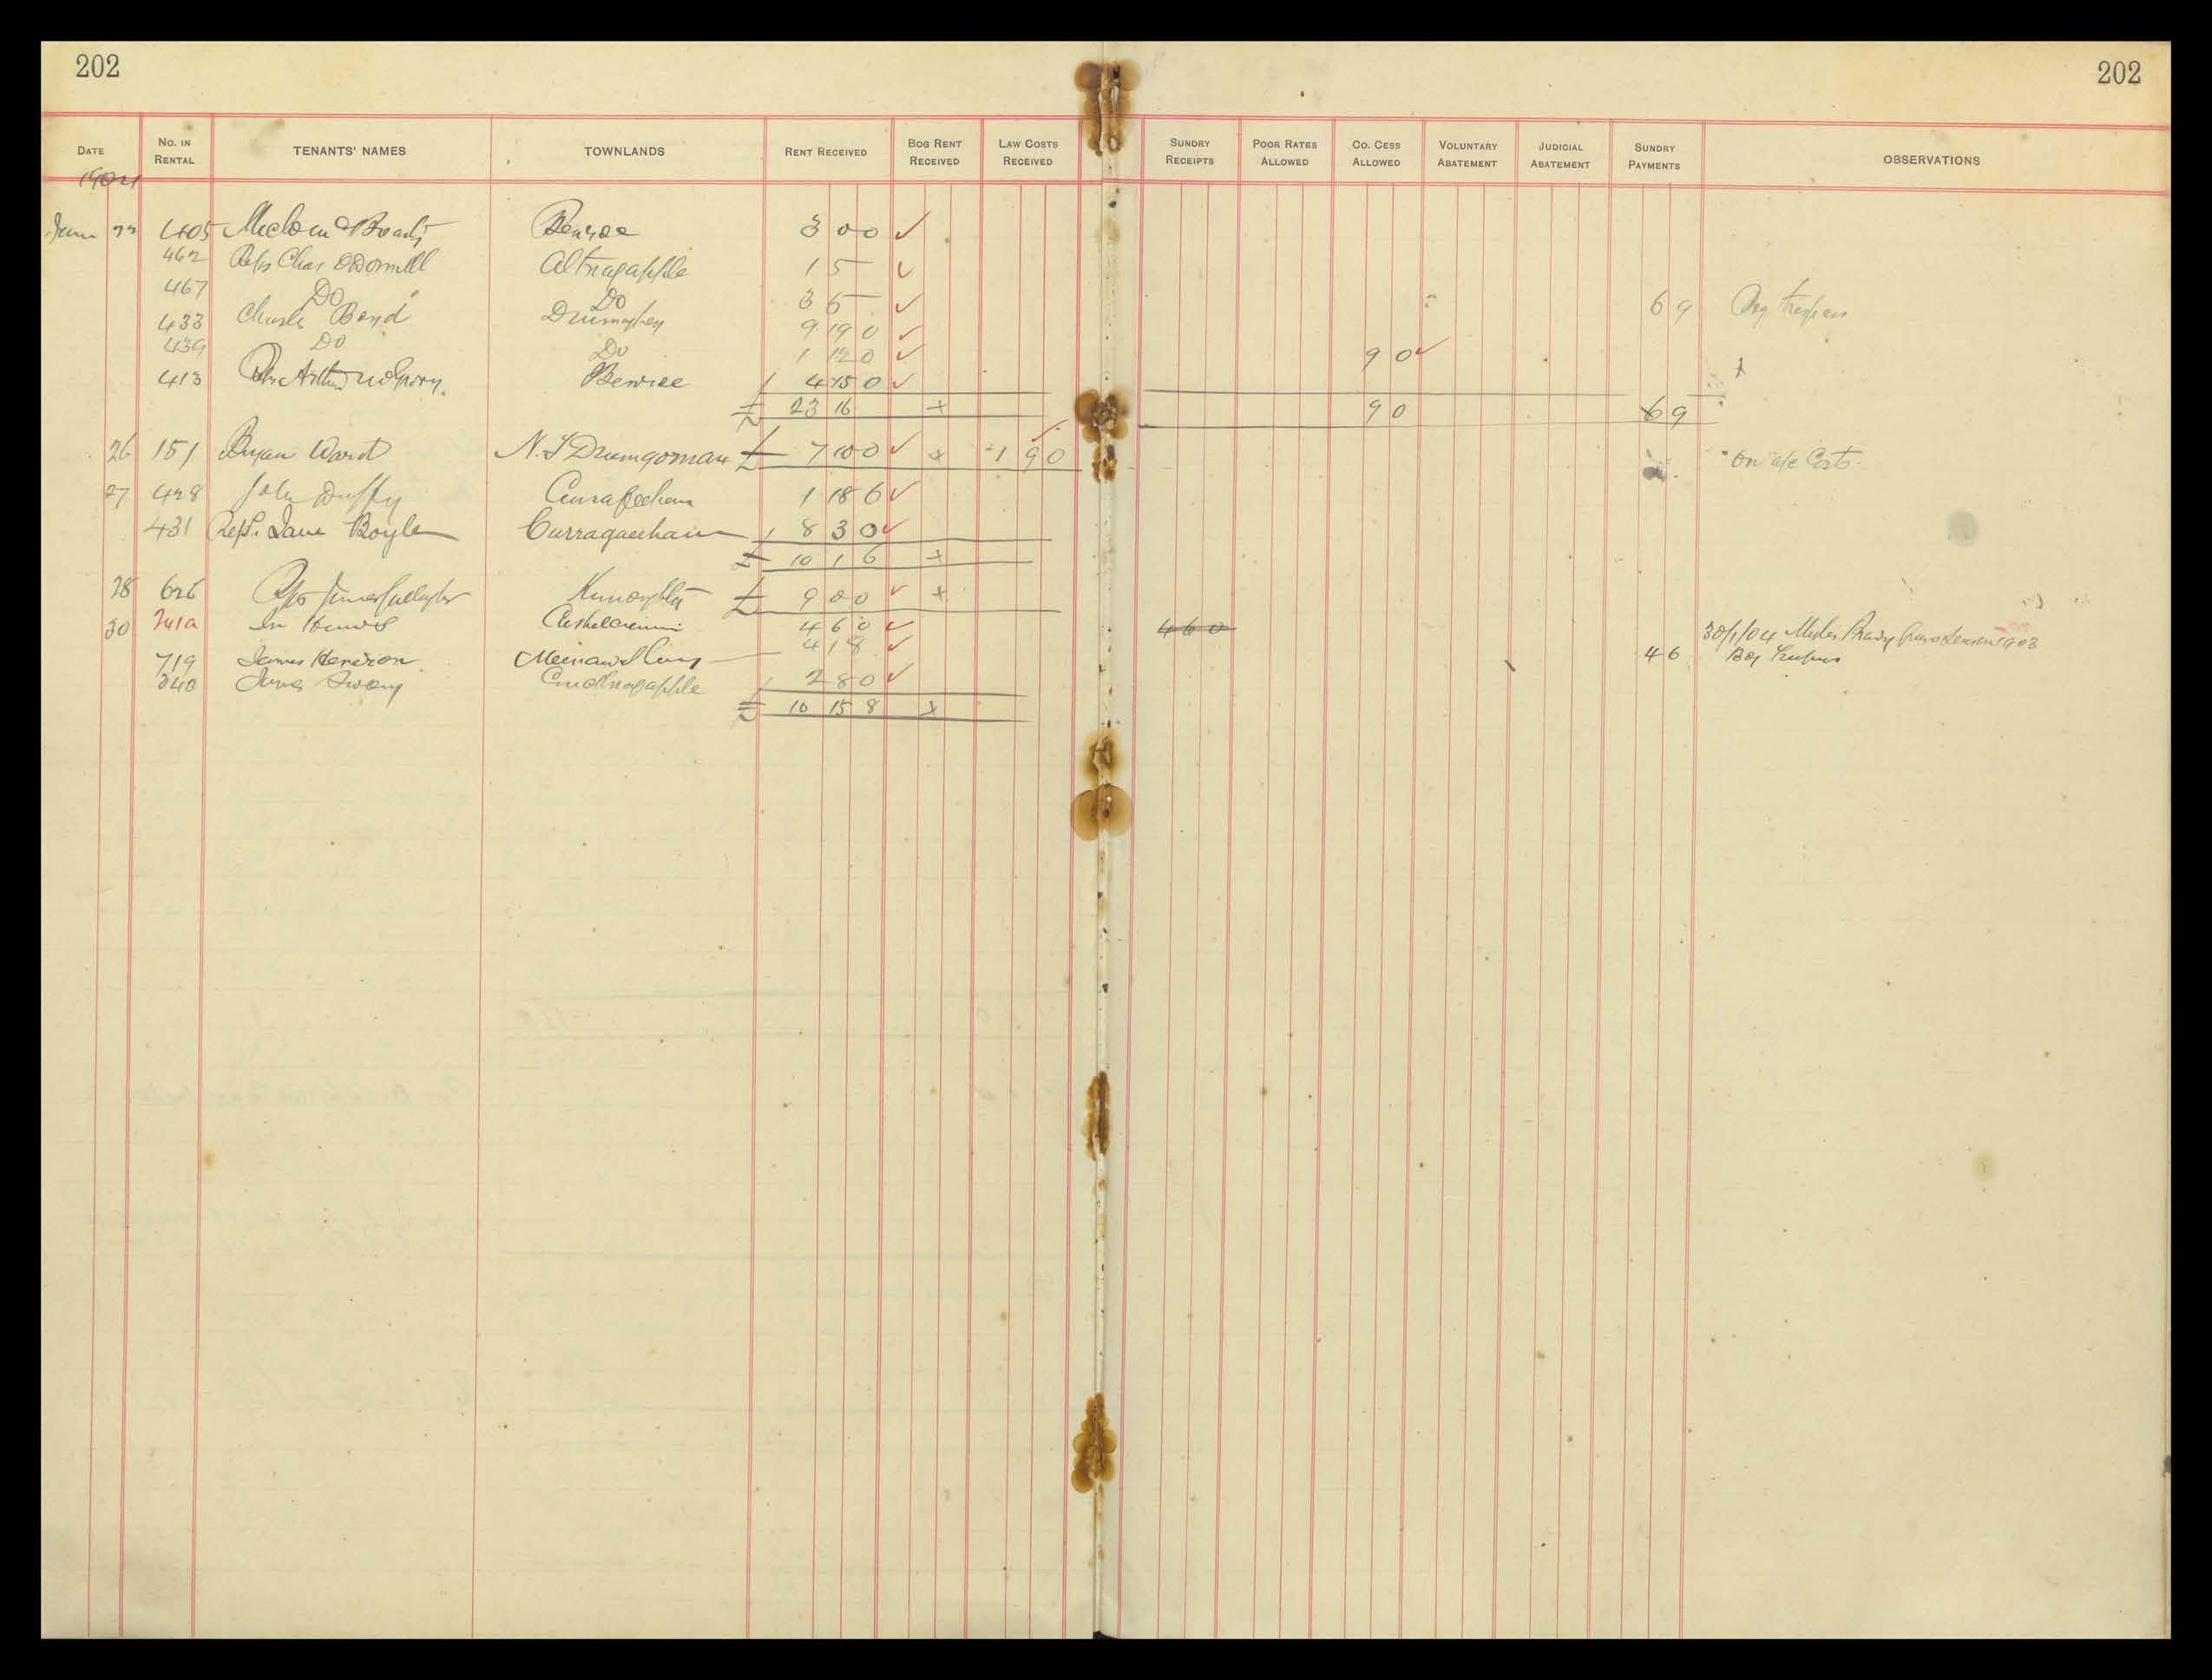 202 202
DATE No. IN RENTAL TENANTS' NAMES TOWNLANDS RENT RECEIVED BOG RENT RECEIVED LAW COSTS RECEIVED SUNDRY RECEIPTS POOR RATES ALLOWED CO. CESS ALLOWED VOLUNTARY ABATEMENT JUDICIAL ABATEMENT SUNDRY PAYMENTS OBSERVATIONS
1904
405 Benroe 3 0 0 ✓
462 Reps Chas O'Donnell Altnagapple 1 5 – ✓
467 Do Do 3 5 – ✓ 6 9 Bog trespass
433 Charles Boyd Drumaghey 9 19 0 ✓
439 Do Do 1 12 0 ✓ 9 0 ✓
413 Reps Arthur Benroe 4 15 0 ✓
£ 23 16 x 9 0 6 9
26 151 Bryan Ward N. T Drumgorman £ 7 10 0 ✓ x 1 9 0 ✓ On a/c Costs
27 428 John Duffy 1 18 6 ✓
431 Reps. Jane Boyle Curragaeehan 8 3 0 ✓
£ 10 1 6 x
28 626 Reps James Gallagher £ 9 0 0 ✓ x
30 741a 4 6 0 ✓ 4 6 0 30/1/04 Myles 1903
719 James Herdron 4 1 8 ✓ 4 6 Bog Trespass
340 James 2 8 0 ✓
£ 10 15 8 x